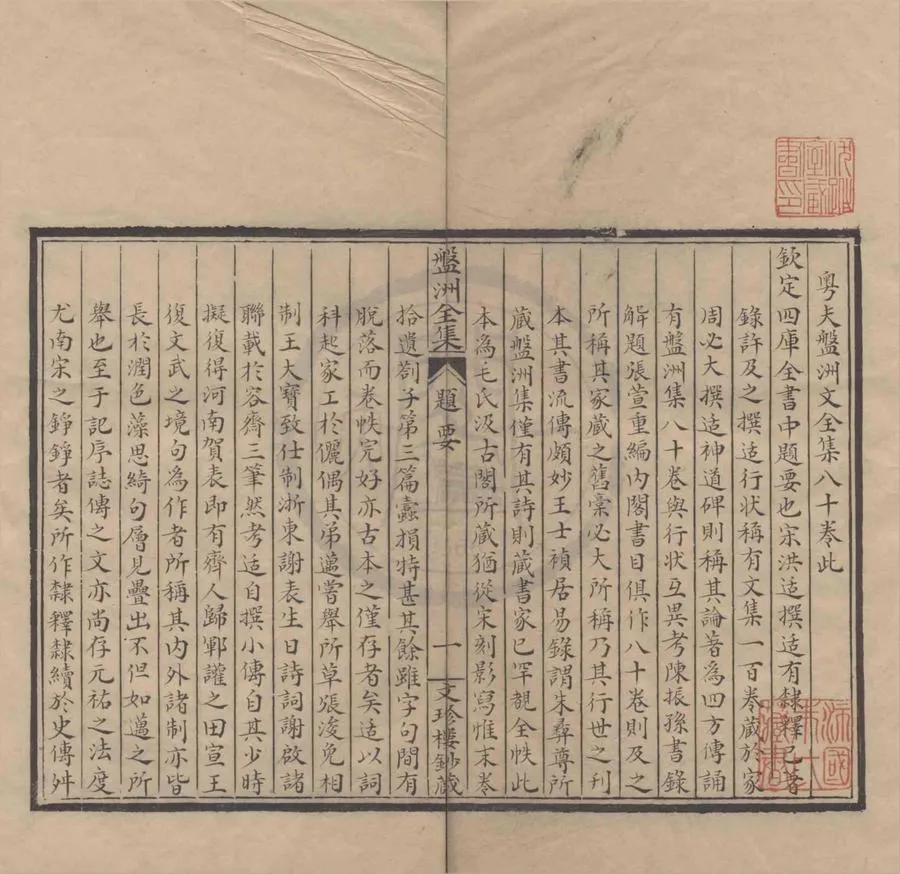 粤夫盤洲文全集八十卷此
欽定四庫全書中題要也宋洪适撰适有隸釋已著
錄許及之撰适行狀稱有文集一百卷藏於家
周必大撰适神道碑則稱其論著為四方傳誦
有盤洲集八十卷與行狀互異考陳振孫書錄
解題張萱重編內閣書目俱作八十卷則及之
所稱其家藏之舊稾必大所稱乃其行世之刊
本其書流傳頗妙王士禎居易錄謂朱彝尊所
藏盤洲集僅有其詩則藏書家已罕覩全帙此
本為毛氏汲古閣所藏猶從宋刻影寫惟末卷
盤洲全集 題要 一 文珍樓鈔藏
拾遺劄子第三篇蠹損特甚其餘雖字句間有
脫落而卷帙完好亦古本之僅存者矣适以詞
科起家工於儷偶其弟邁嘗舉所草張浚免相
制王大寶致仕制浙東謝表生日詩詞謝啟諸
聯載於容齊三筆然考适自撰小傳自其少時
擬復得河南賀表即有齊人歸鄆讙之田宣王
復文武之境句為作者所稱其內外諸制亦皆
長於潤色藻思綺句層見疊出不但如邁之所
舉也至于記序誌傳之文亦尚存元祐之法度
尤南宋之錚錚者矣所作隸釋隸續於史傳舛